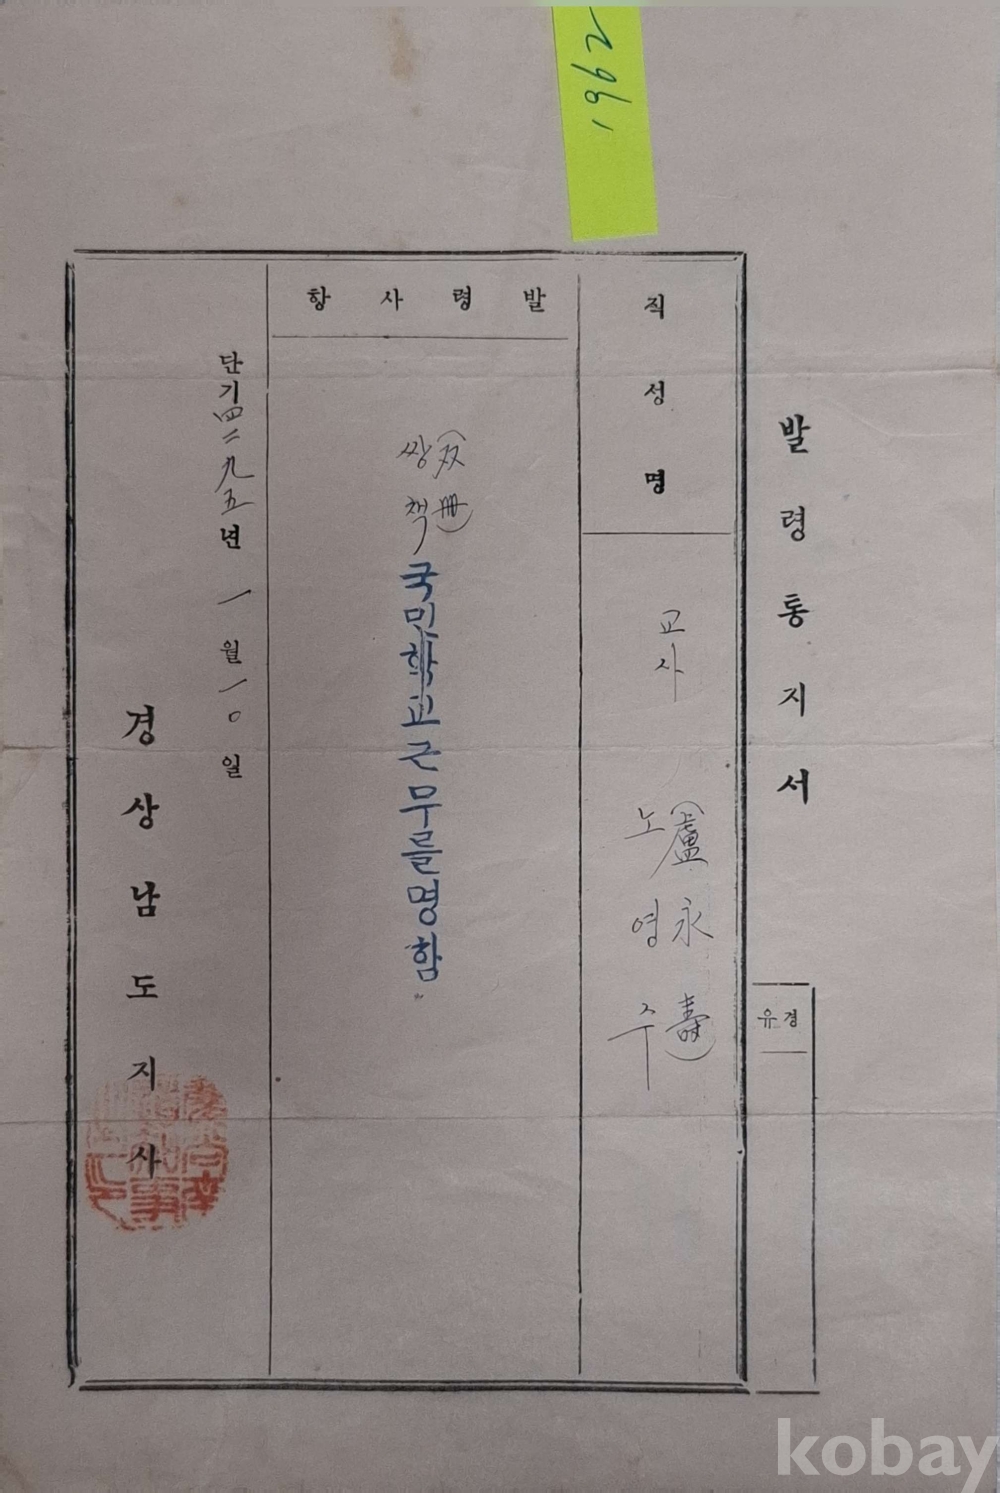 1962
발령통지서
경유
직성명
교사 노영주(盧永壽)
발령사항
쌍책(双冊)국민학교근무를명함
단기四二九五년 一월 一〇일
경상남도지사
kobay